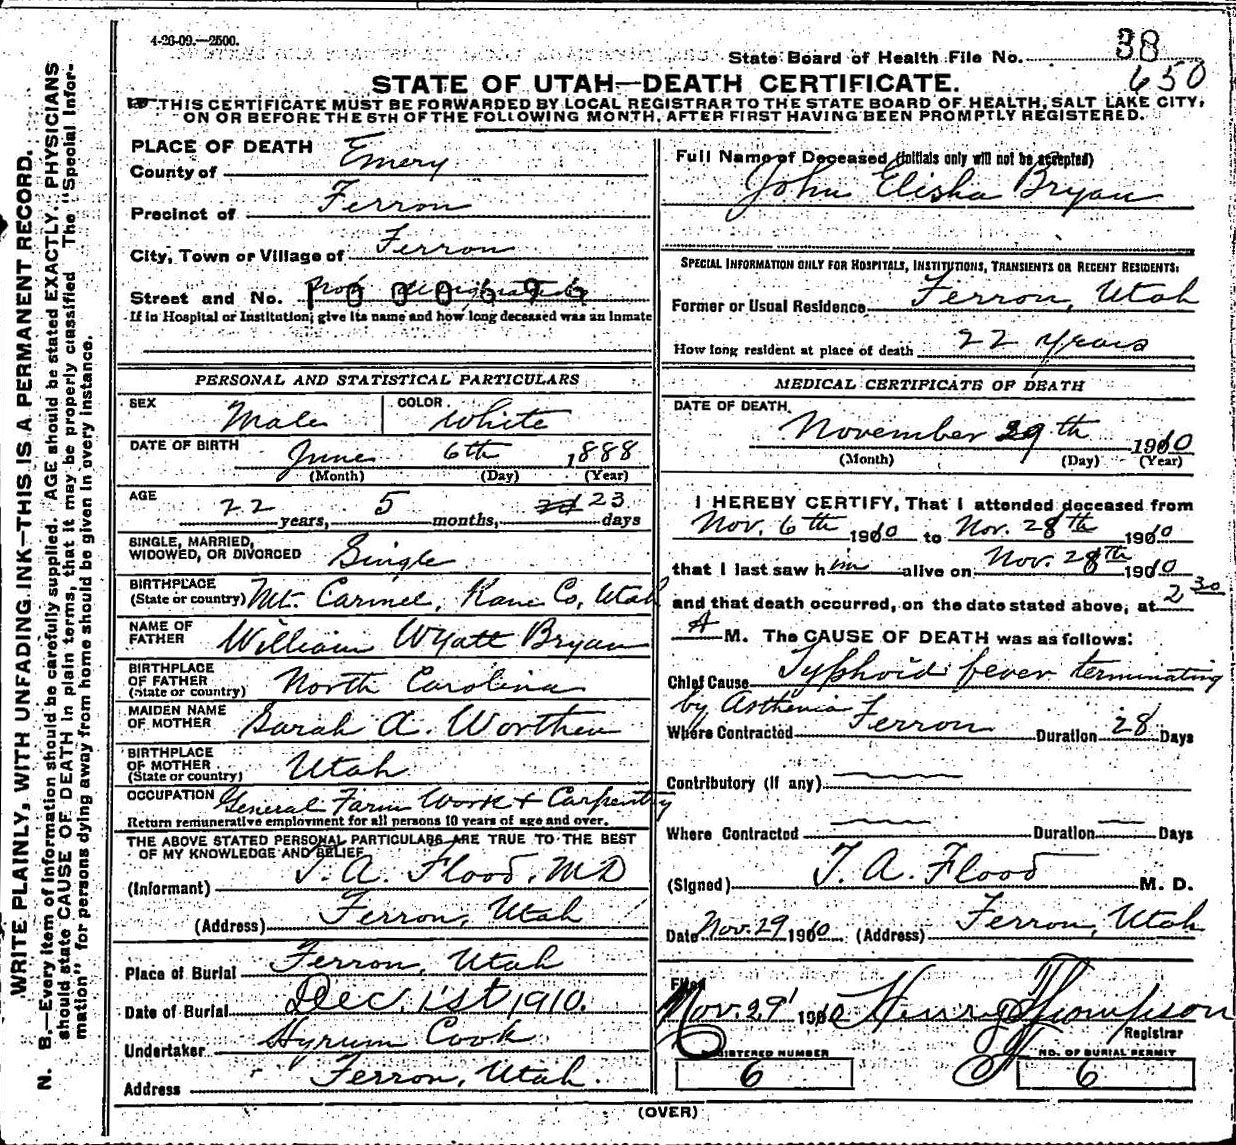 4-26-09.—2500.
State Board of Health File No. 38
650
STATE OF UTAH—DEATH CERTIFICATE.
THIS CERTIFICATE MUST BE FORWARDED BY LOCAL REGISTRAR TO THE STATE BOARD OF HEALTH, SALT LAKE CITY,
ON OR BEFORE THE 5TH OF THE FOLLOWING MONTH, AFTER FIRST HAVING BEEN PROMPTLY REGISTERED.
WRITE PLAINLY, WITH UNFADING INK—THIS IS A PERMANENT RECORD.
N. B.—Every item of information should be carefully supplied. AGE should be stated EXACTLY. PHYSICIANS
should state CAUSE OF DEATH in plain terms, that it may be properly classified The "Special Infor-
mation" for persons dying away from home should be given in every instance.
PLACE OF DEATH
County of Emery
Precinct of Ferron
City, Town or Village of Ferron
Street and No. 1000696
If in Hospital or Institution, give its name and how long deceased was an inmate
PERSONAL AND STATISTICAL PARTICULARS
SEX Male COLOR White
DATE OF BIRTH June 6th 1888
(Month) (Day) (Year)
AGE 22 years, 5 months, 23 days
SINGLE, MARRIED,
WIDOWED, OR DIVORCED Single
BIRTHPLACE
(State or country) Mt. Carmel, Kane Co, Utah
NAME OF
FATHER William Wyatt Bryan
BIRTHPLACE
OF FATHER
(State or country) North Carolina
MAIDEN NAME
OF MOTHER Sarah A. Worthen
BIRTHPLACE
OF MOTHER
(State or country) Utah
OCCUPATION General Farm Work & Carpentry
Return remunerative employment for all persons 10 years of age and over.
THE ABOVE STATED PERSONAL PARTICULARS ARE TRUE TO THE BEST
OF MY KNOWLEDGE AND BELIEF
(Informant) T. A. Flood, MD
(Address) Ferron, Utah
Place of Burial Ferron, Utah
Date of Burial Dec. 1st 1910.
Undertaker Hyrum Cook
Address Ferron, Utah.
Full Name of Deceased (Initials only will not be accepted)
John Elisha Bryan
SPECIAL INFORMATION ONLY FOR HOSPITALS, INSTITUTIONS, TRANSIENTS OR RECENT RESIDENTS:
Former or Usual Residence Ferron, Utah
How long resident at place of death 22 years
MEDICAL CERTIFICATE OF DEATH
DATE OF DEATH.
November 29th 1910
(Month) (Day) (Year)
I HEREBY CERTIFY, That I attended deceased from
Nov. 6th 1910 to Nov. 28th 1910
that I last saw him alive on Nov. 28th 1910
and that death occurred, on the date stated above, at 2 30
A M. The CAUSE OF DEATH was as follows:
Chief Cause Typhoid fever terminating
by Asthenia
Where Contracted Ferron Duration 28 Days
Contributory (if any)
Where Contracted Duration Days
(Signed) T. A. Flood M. D.
Date Nov. 29 1910 (Address) Ferron, Utah
Filed
Nov. 29 1910 Henry Thompson
Registrar
REGISTERED NUMBER
6
NO. OF BURIAL PERMIT
6
(OVER)